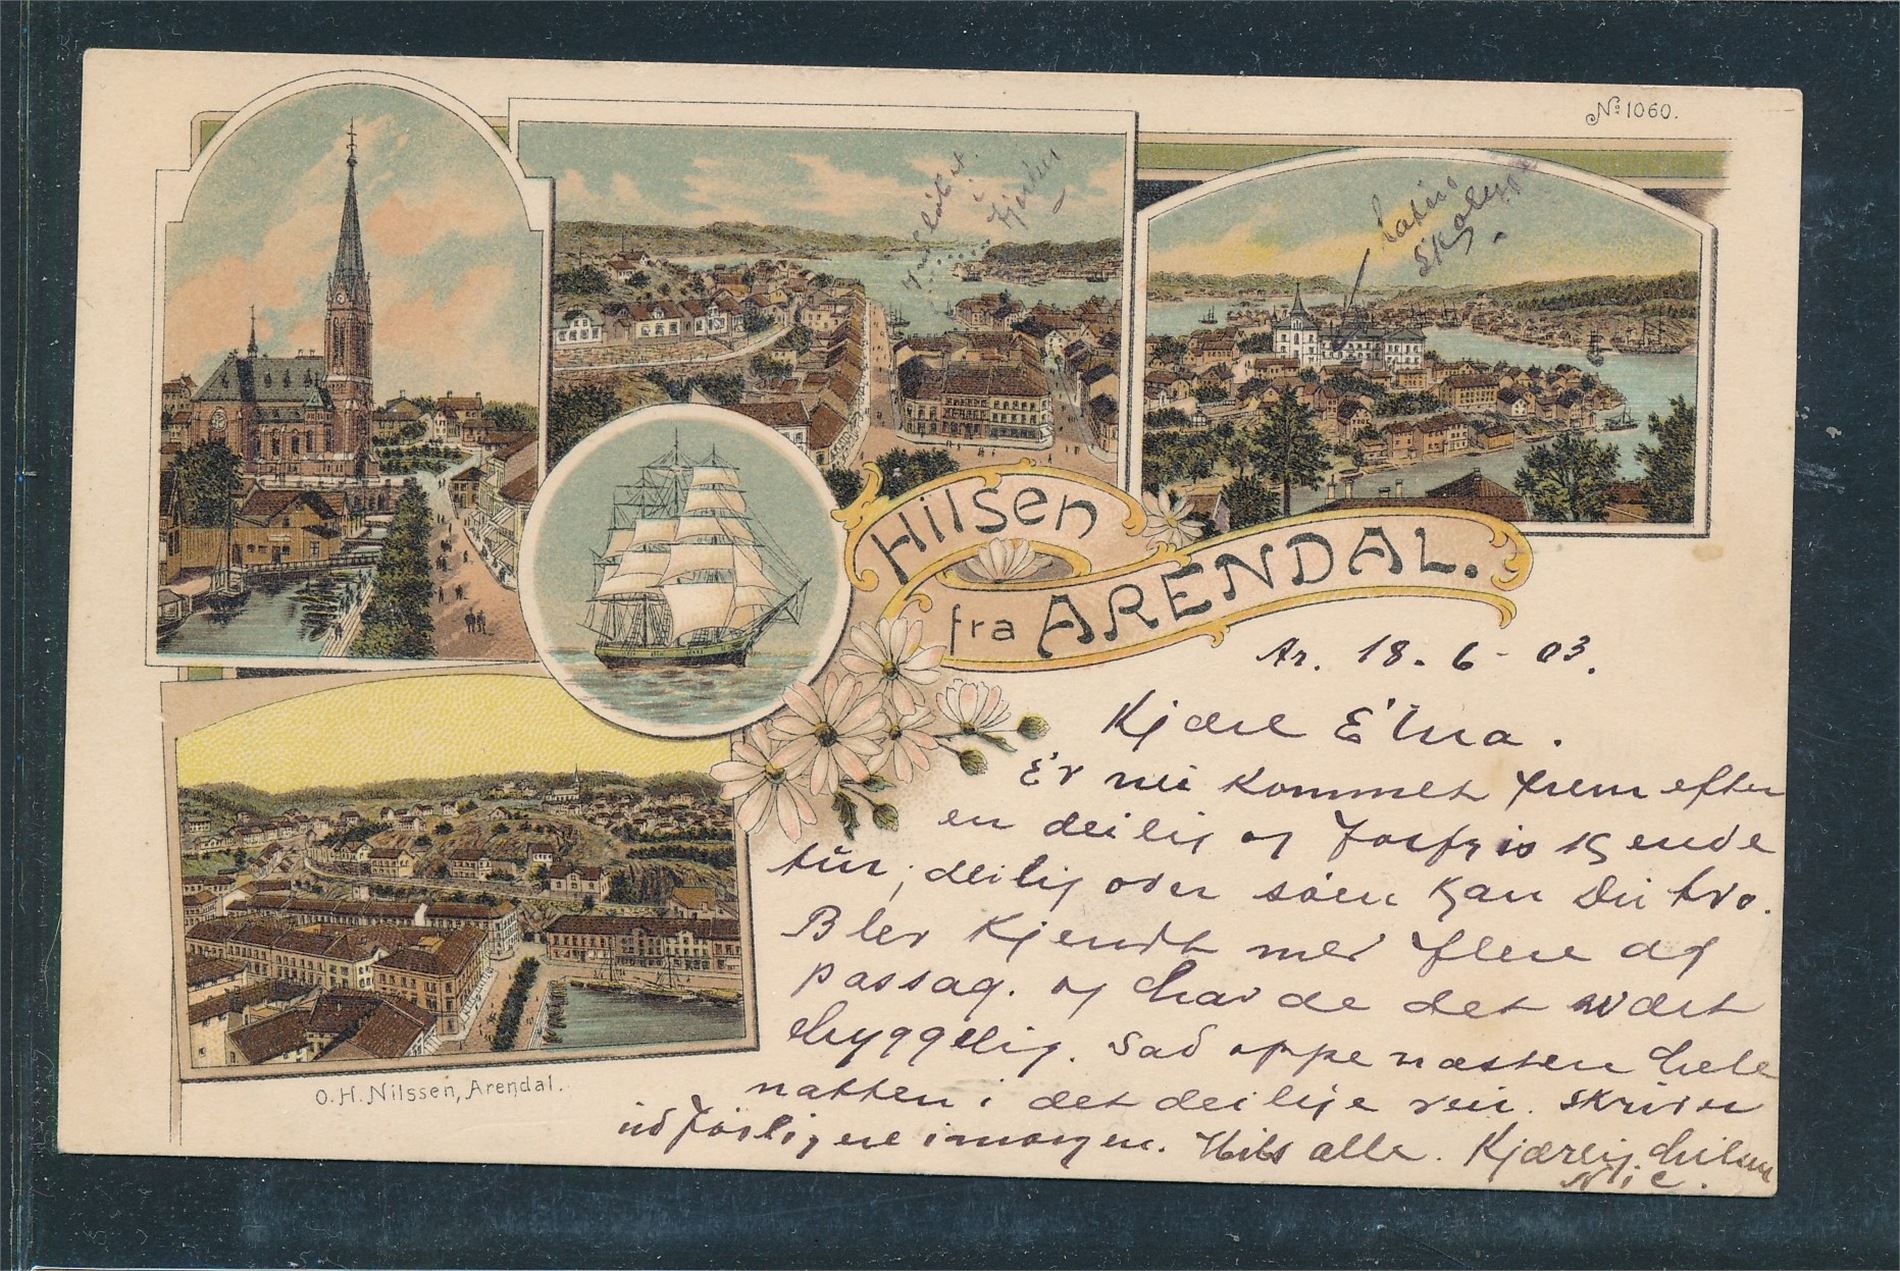 No: 1060.
Latin
Skolen
Hilsen
fra ARENDAL.
Ar. 18-6-03.
Kjære Elna.
Er nu kommet frem efter
en deilig og forfriskende
tur, deilig over søen kan Du tro.
Blev kjendt med flere af
passag. og havde det svært
hyggelig. Sad oppe næsten hele
natten i det deilige veir. Skriver
udførligere imorgen. Hils alle. Kjærlig hilsen
Nic.
O. H. Nilssen, Arendal.